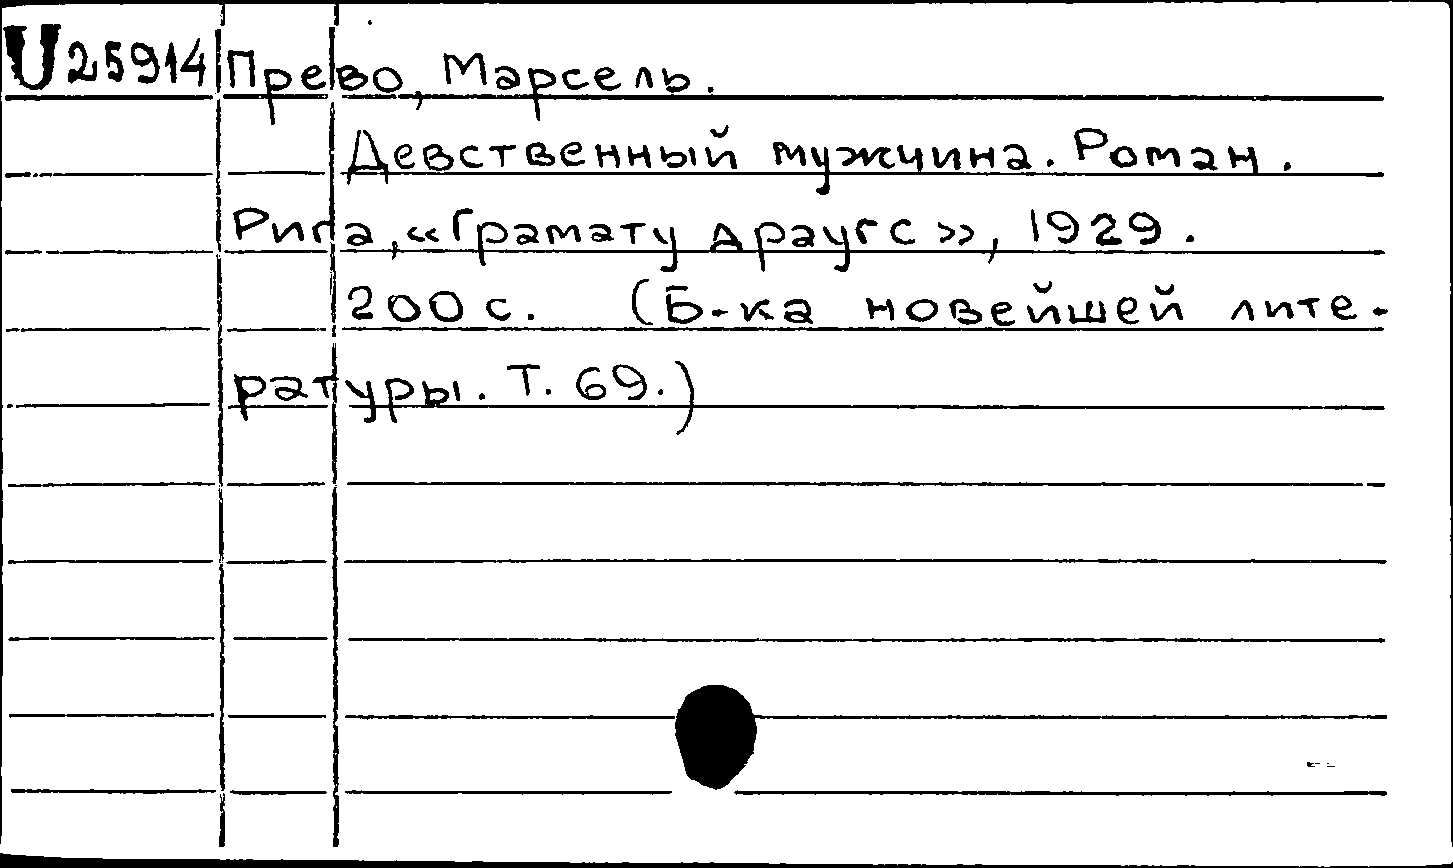 U25914 Прево, Марсель.
Девственный мужчина. Роман.
Рига, «Грамату драугс», 1929.
200 с. (Б-ка новейшей лите-
ратуры. Т. 69.)